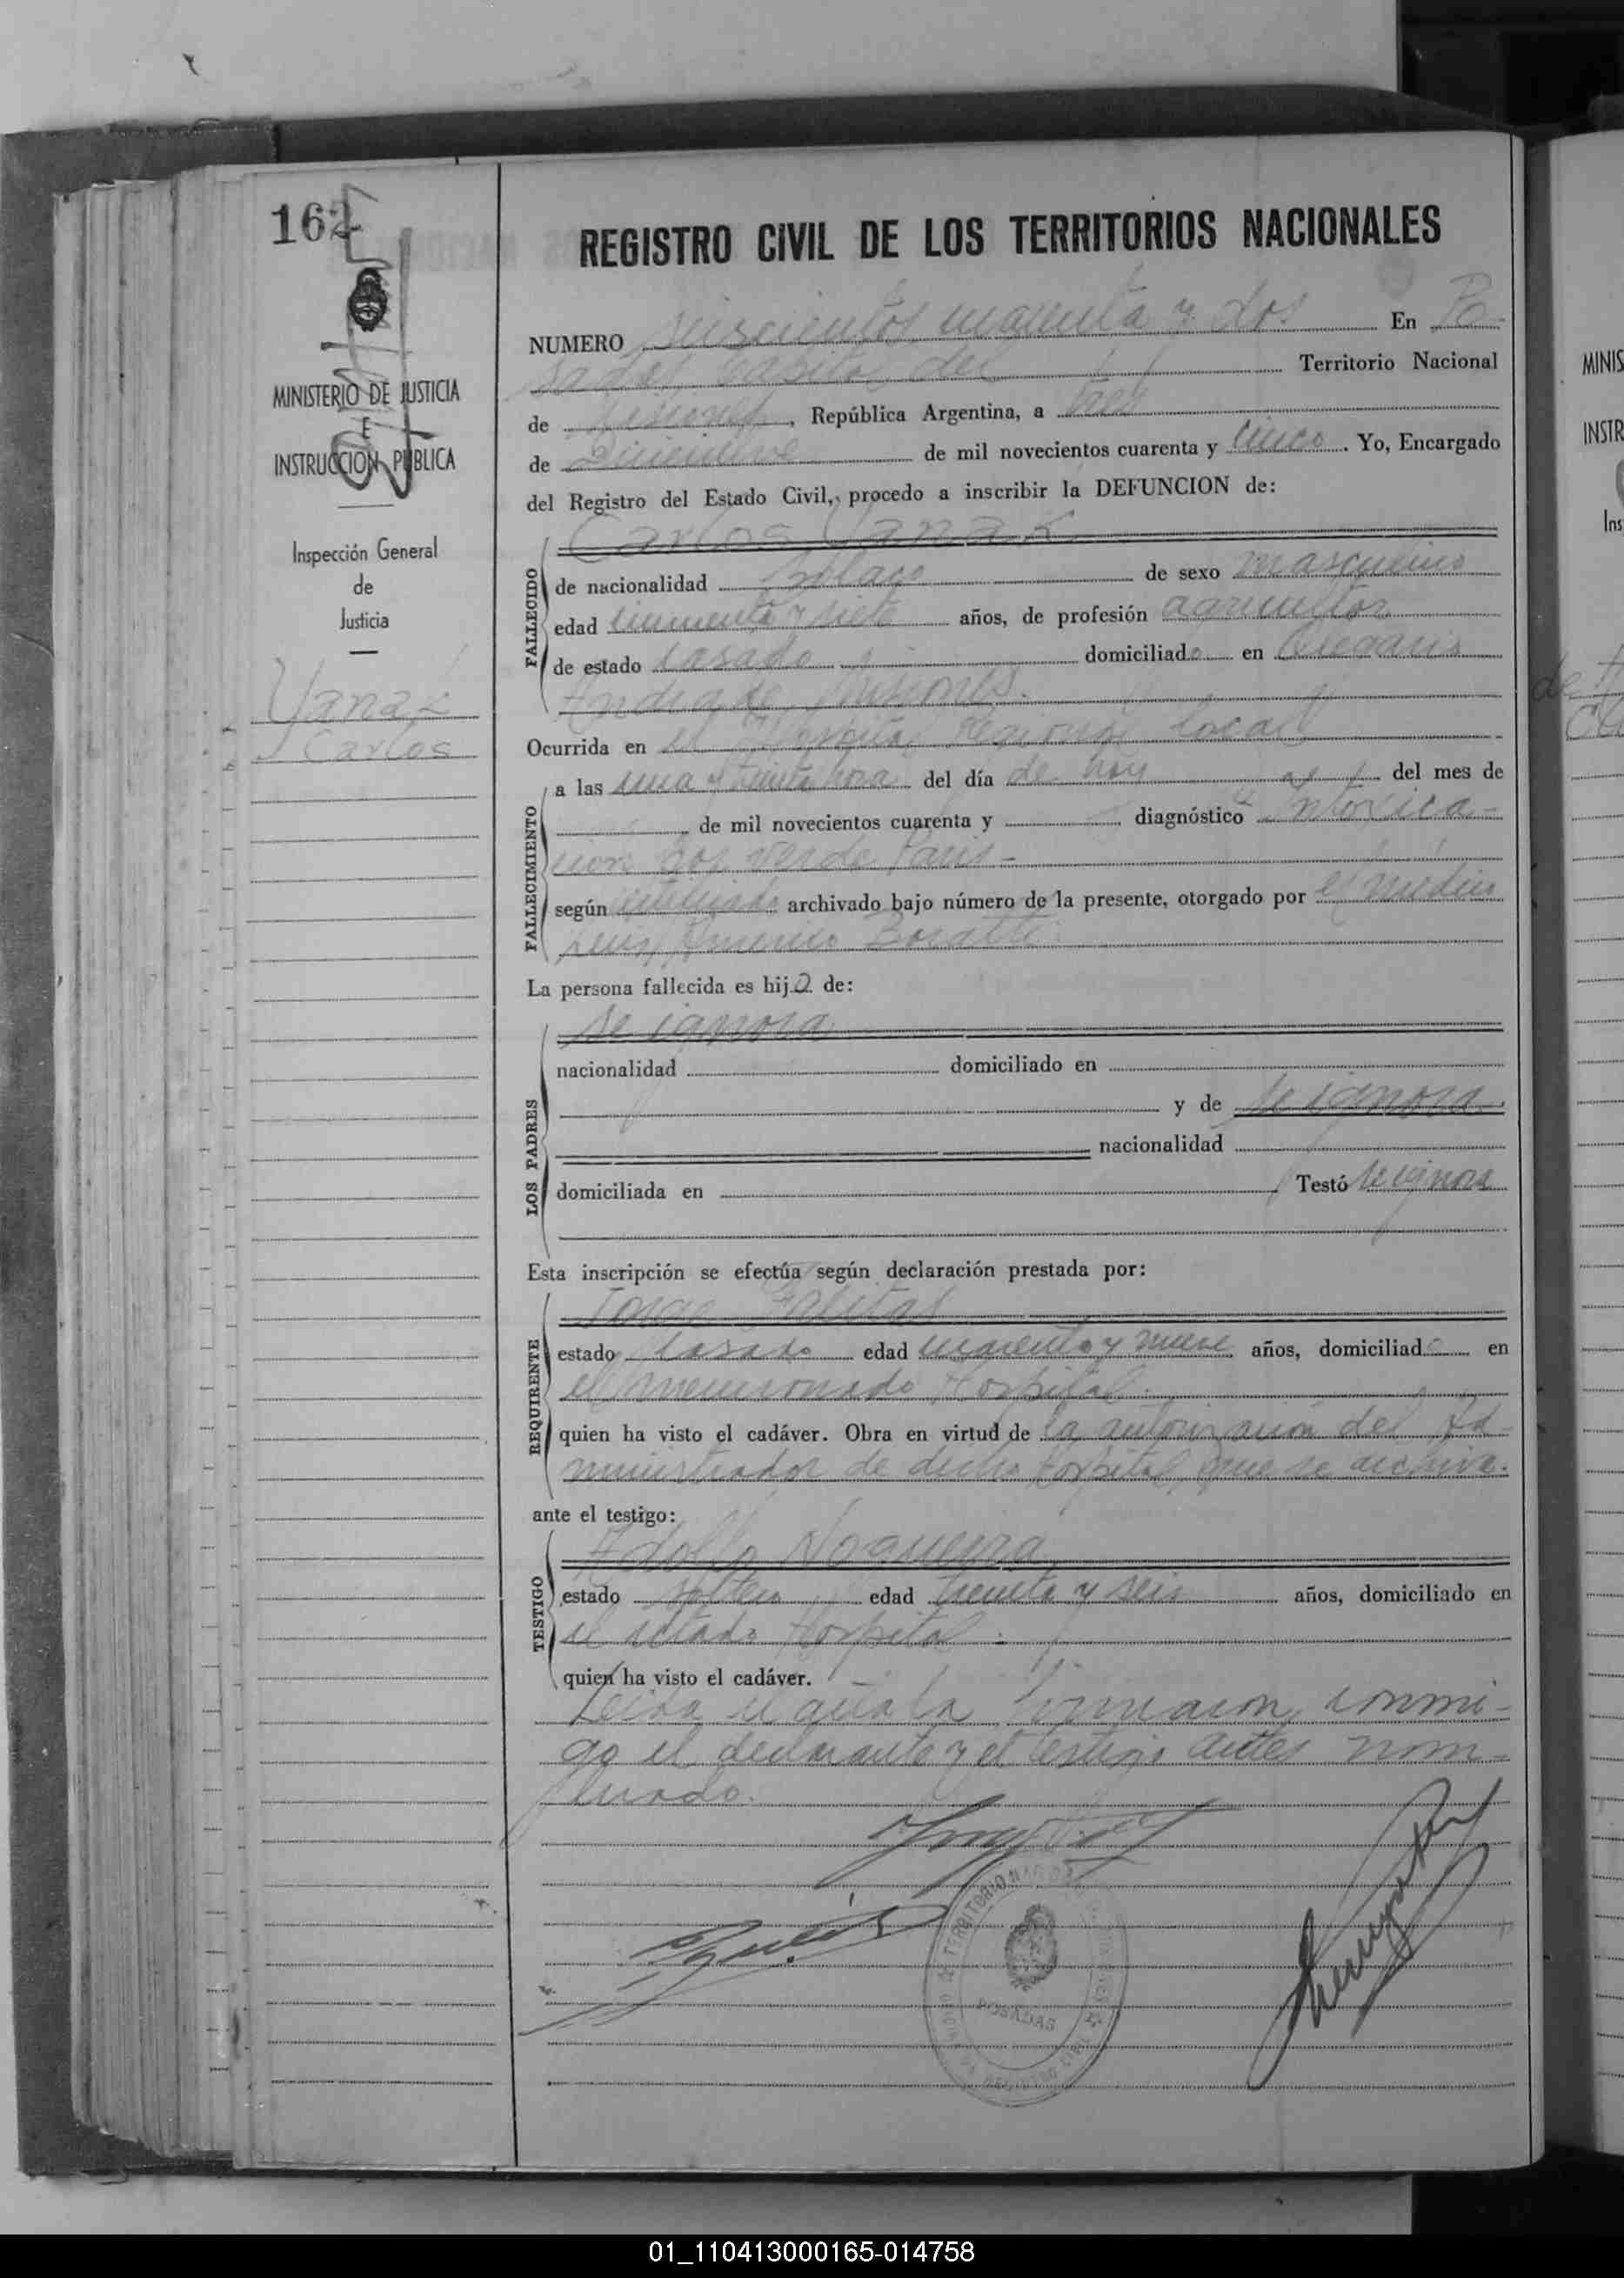 162
REGISTRO CIVIL DE LOS TERRITORIOS NACIONALES
MINISTERIO DE JUSTICIA
E
INSTRUCCION PUBLICA
Inspección General
de
Justicia
Yanak
Carlos
NUMERO seiscientos cuarenta y dos En Po-
sadas Capital del Territorio Nacional
de Misiones, República Argentina, a tres
de Diciembre de mil novecientos cuarenta y cinco. Yo, Encargado
del Registro del Estado Civil, procedo a inscribir la DEFUNCION de:
Carlos Yanak
FALLECIDO
de nacionalidad Polaco de sexo masculino
edad cincuenta y siete años, de profesión agricultor
de estado casado domiciliado en Olegario
Andrade Misiones.
Ocurrida en el Hospital Regional local
FALLECIMIENTO
a las una y treinta hora del día de hoy del mes de
de mil novecientos cuarenta y diagnóstico intoxica-
cion por verde Paris -
según certificado archivado bajo número de la presente, otorgado por el médico
La persona fallecida es hijo de:
LOS PADRES
se ignora
nacionalidad domiciliado en
y de se ignora
nacionalidad
domiciliada en Testó se ignora
Esta inscripción se efectúa según declaración prestada por:
REQUIRENTE
Jorge
estado casado edad cuarenta y nueve años, domiciliado en
el mencionado Hospital.
quien ha visto el cadáver. Obra en virtud de la autorizacion del Ad-
ministrador de dicho Hospital, que se archiva.
ante el testigo:
TESTIGO
Adolfo Nogueira
estado soltero edad treinta y seis años, domiciliado en
el citado Hospital.
quien ha visto el cadáver.
Leida el acta la firmaron conmi-
go el declarante y el testigo antes nom-
brado.
POSADAS
MINIS
INSTR
Ins
01_110413000165-014758